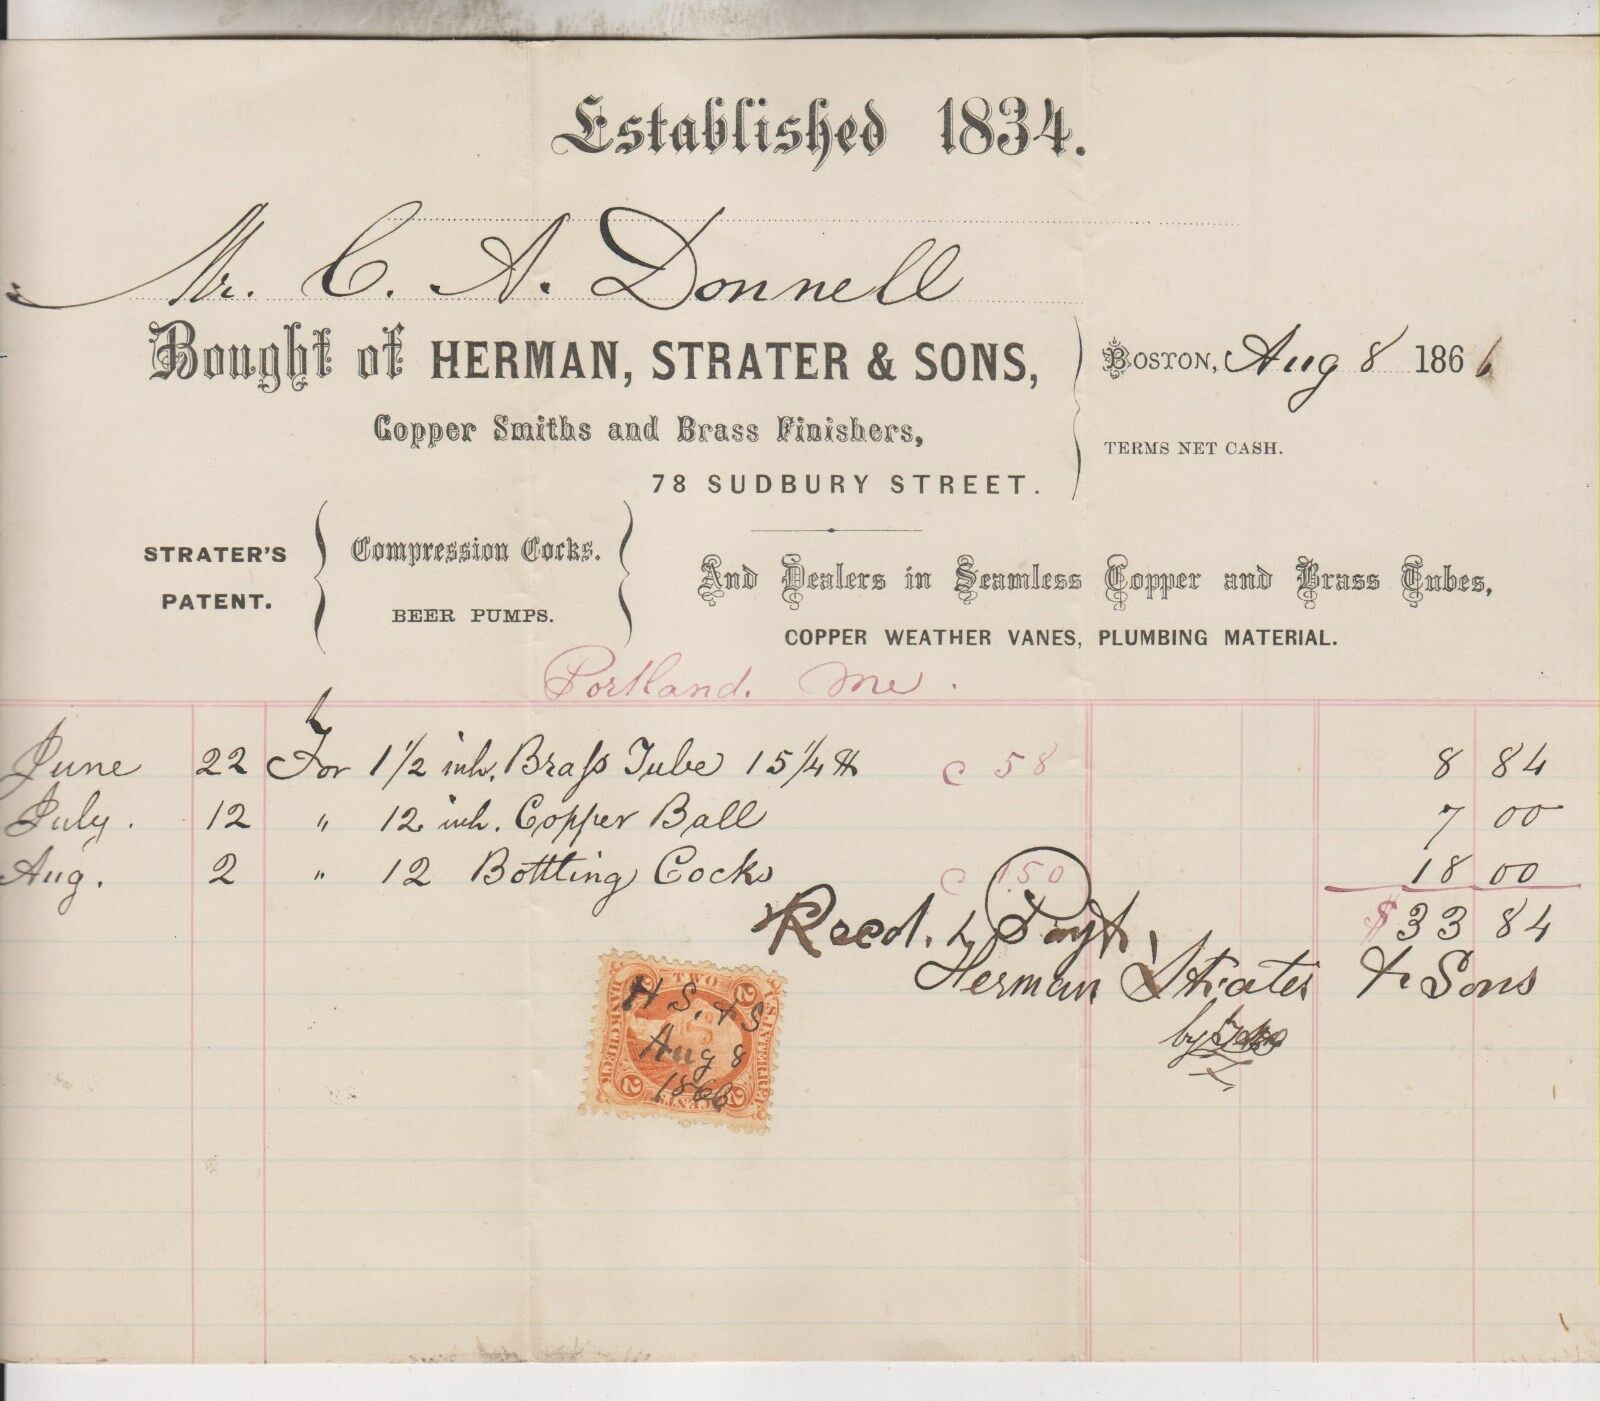 Established 1834.
Mr. C. A. Donnell
Bought of HERMAN, STRATER & SONS,
Copper Smiths and Brass Finishers,
78 SUDBURY STREET.
BOSTON, Aug 8 1866
TERMS NET CASH.
STRATER'S PATENT.
Compression Cocks.
BEER PUMPS.
And Dealers in Seamless Copper and Brass Tubes,
COPPER WEATHER VANES, PLUMBING MATERIAL.
Portland. Me.
June 22 For 1 1/2 inh. Brass Tube 15 1/4 lb c 58 8 84
July. 12 " 12 inh. Copper Ball 7 00
Aug. 2 " 12 Bottling Cocks c 1.50 18 00
$33 84
Recd. Payt,
Herman Strater & Sons
by
U.S. INTER. REV.
TWO
BANK CHECK
CENTS
2 2 2 2
H S. & S
Aug 8
1866